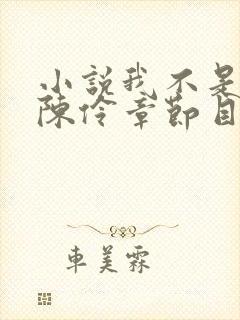 小說我不是
陳伶章節目
車美霖